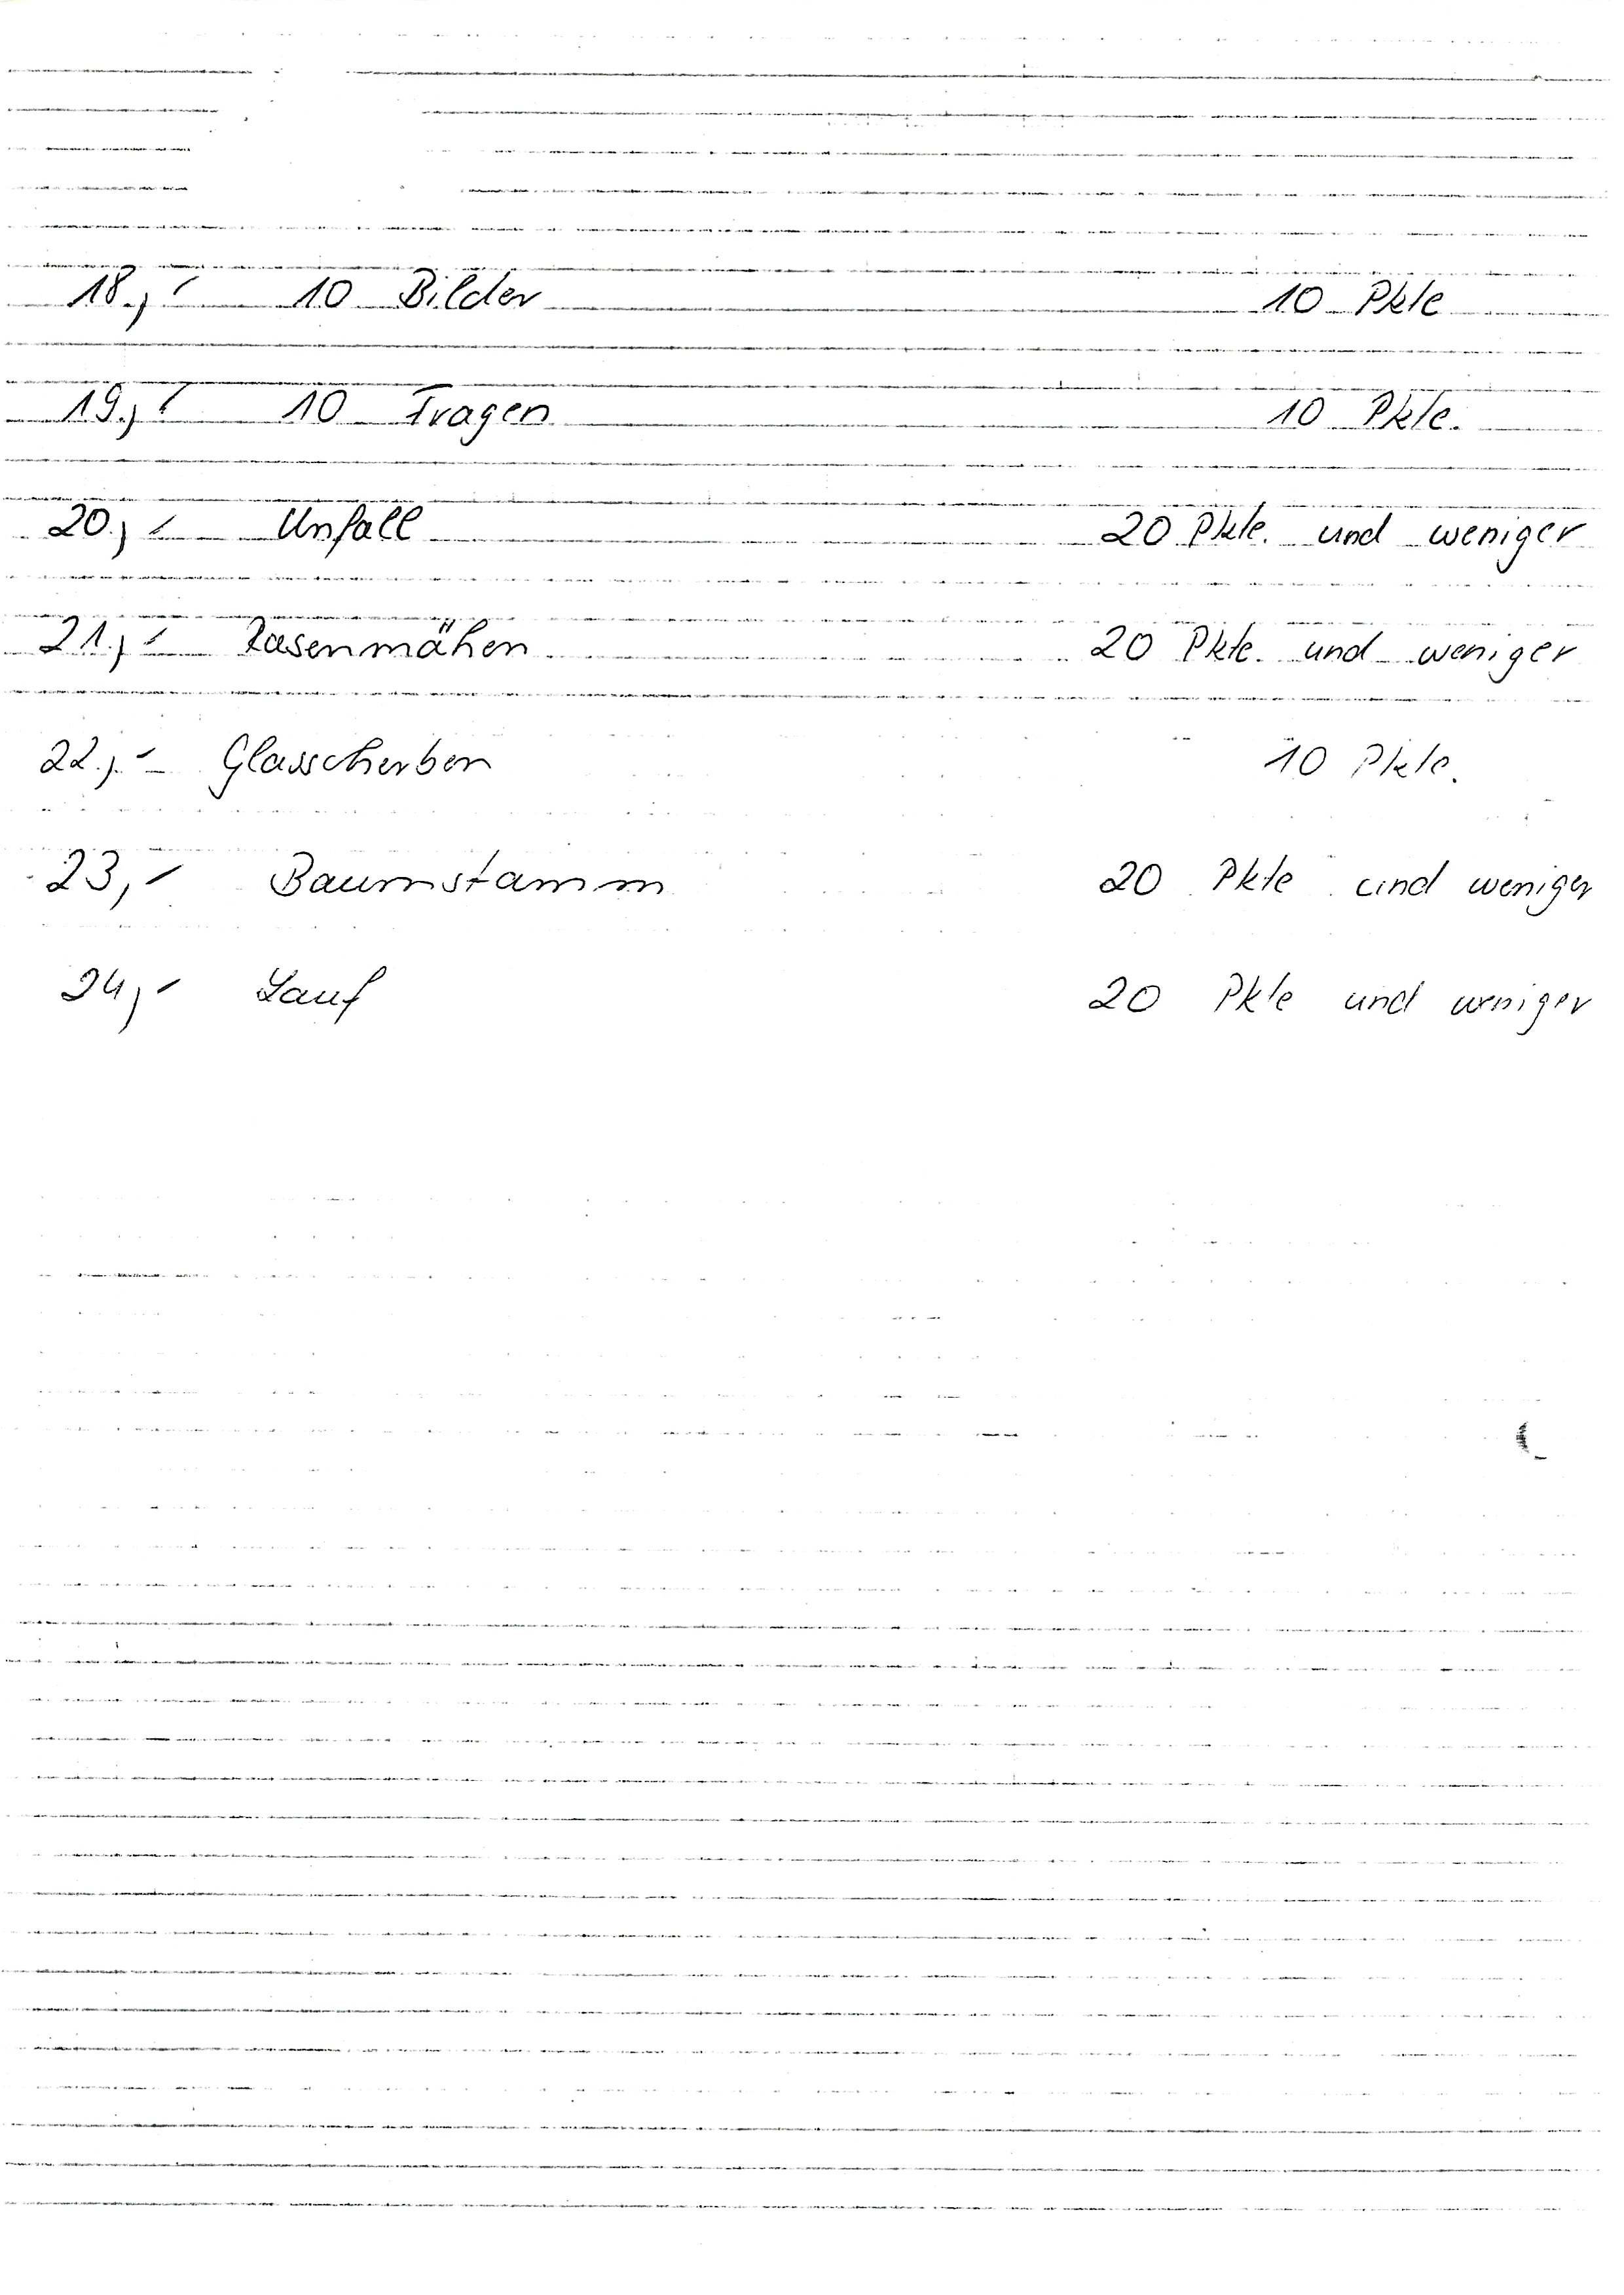 18.) 10 Bilder 10 Pkte
19.) 10 Fragen 10 Pkte.
20.) Unfall 20 Pkte. und weniger
21.) Rasenmähen 20 Pkte. und weniger
22.) Glasscherben 10 Pkte.
23,) Baumstamm 20 Pkte und weniger
24,) Lauf 20 Pkte und weniger